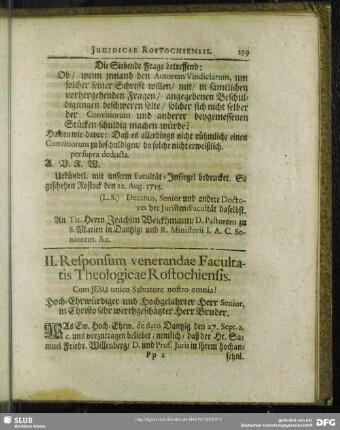 JURIDICAE ROSTOCHIENSIS. 299
Die Siebende Frage betreffend:
Ob / wenn jemand den Autorem Vindiciarum, um
solcher seiner Schrifft willen / mit / in sämtlichen
vorhergehenden Fragen / angegebenen Beschul-
digungen beschweren solte / solcher sich nicht selber
der Convitiorum und anderer beygemessenen
Stücken schuldig machen würde?
Halten wir davor: Daß es allerdings nicht rühmlich / einen
Convitiorum zu beschuldigen / da solche nicht erweißlich.
per supra deducta.
A. V. R. W.
Urkündl. mit unserm Facultät-Insiegel bedrucket. So
geschehen Rostock den 22. Aug. 1715.
(L.S.) Decanus, Senior und andere Docto-
res der Juristen Facultät daselbst.
An Tit. Herrn Joachim Weickhmann / D. Pastorem zu
S. Marien in Dantzig / und R. Ministerii I. A. C. Se-
niorem. &c.
II. Responsum venerandae Faculta-
tis Theologicae Rostochiensis.
Cum JESU unico Salvatore nostro omnia!
Hoch-Ehrwürdiger und Hochgelahrter Herr Senior,
in Christo sehr werthgeschätzter Herr Bruder.
WAs Ew. Hoch-Ehrw. de dato Dantzig den 27. Sept. a.
c. uns vorzutragen beliebet / nemlich / daß der Hr. Sa-
muel Friedr. Willenberg / D. und Prof. Juris in ihrem hochan-
Pp 2 sehnl.
SLUB
Wir führen Wissen.
gefördert von der
Deutschen Forschungsgemeinschaft